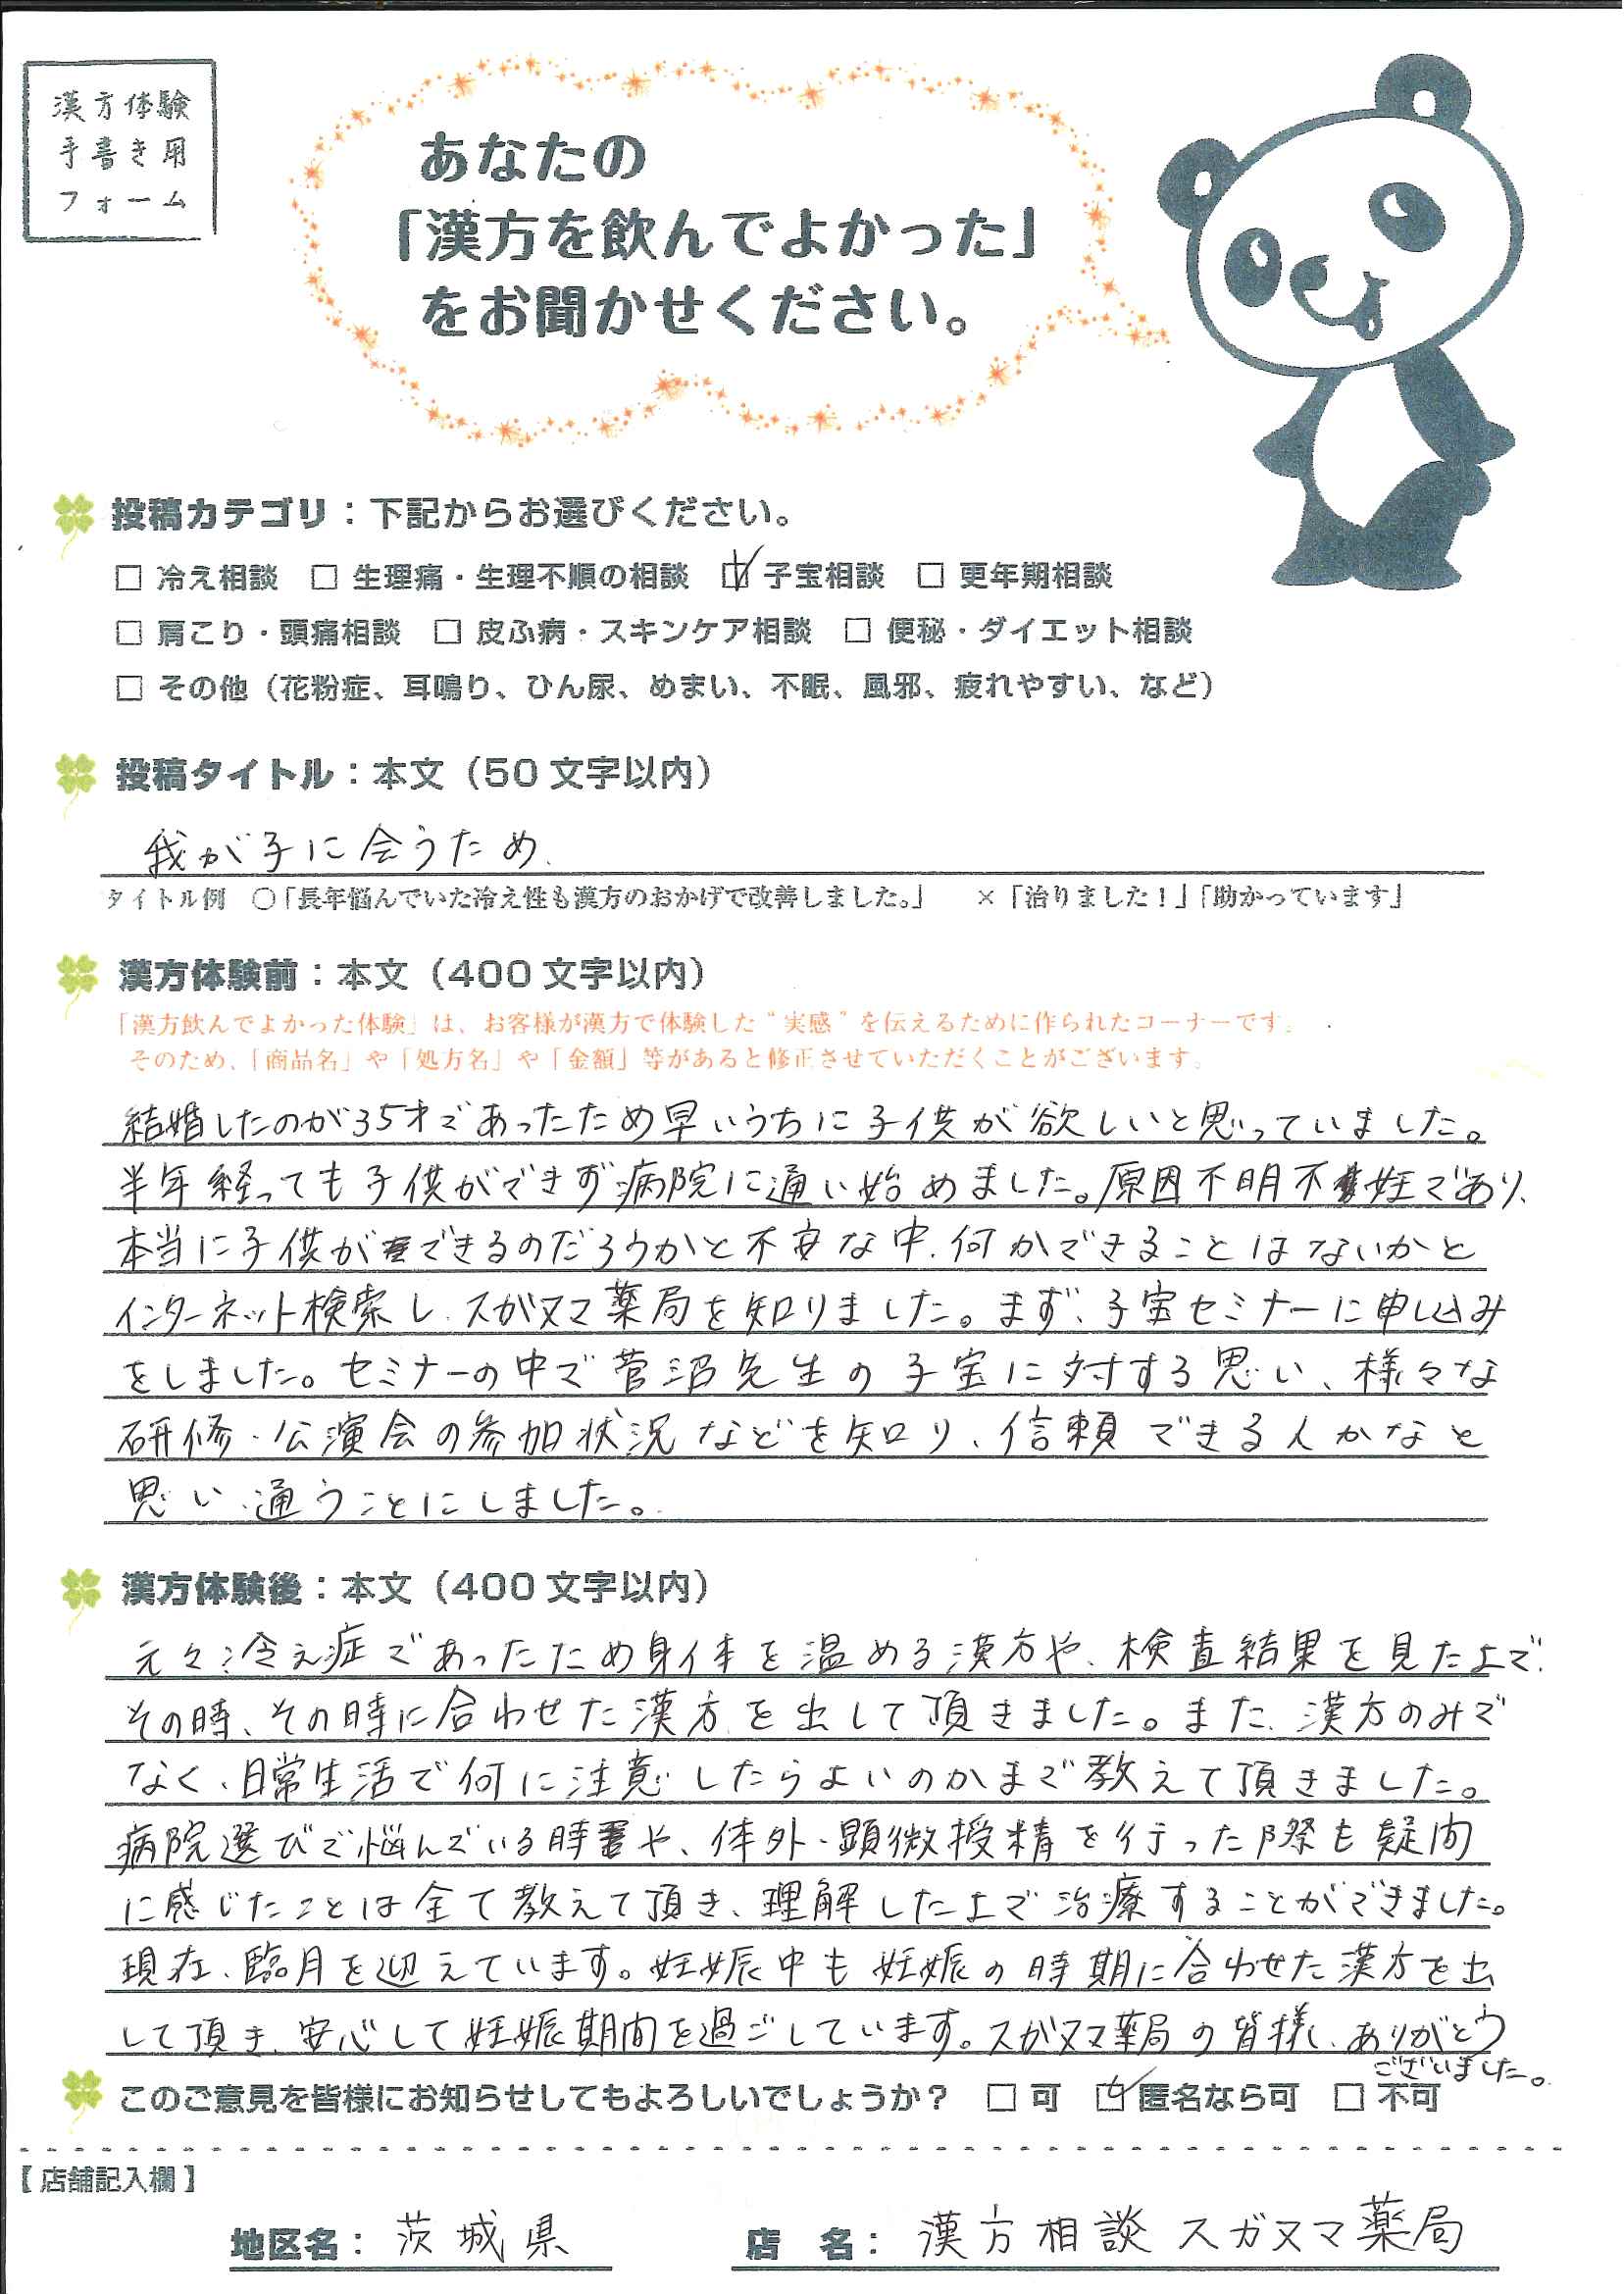 漢方体験
手書き用
フォーム
あなたの
「漢方を飲んでよかった」
をお聞かせください。
投稿カテゴリ：下記からお選びください。
□ 冷え相談 □ 生理痛・生理不順の相談 ☑ 子宝相談 □ 更年期相談
□ 肩こり・頭痛相談 □ 皮ふ病・スキンケア相談 □ 便秘・ダイエット相談
□ その他（花粉症、耳鳴り、ひん尿、めまい、不眠、風邪、疲れやすい、など）
投稿タイトル：本文（50 文字以内）
我が子に会うため
タイトル例 ○「長年悩んでいた冷え性も漢方のおかげで改善しました。」 ×「治りました！」「助かっています」
漢方体験前：本文（400 文字以内）
「漢方飲んでよかった体験」は、お客様が漢方で体験した“実感”を伝えるために作られたコーナーです。
そのため、「商品名」や「処方名」や「金額」等があると修正させていただくことがございます。
結婚したのが35才であったため早いうちに子供が欲しいと思っていました。
半年経っても子供ができず病院に通い始めました。原因不明不妊であり、
本当に子供ができるのだろうかと不安な中、何かできることはないかと
インターネット検索し、スガヌマ薬局を知りました。まず、子宝セミナーに申し込み
をしました。セミナーの中で菅沼先生の子宝に対する思い、様々な
研修・公演会の参加状況などを知り、信頼できる人かなと
思い、通うことにしました。
漢方体験後：本文（400 文字以内）
元々冷え症であったため身体を温める漢方や、検査結果を見た上で、
その時、その時に合わせた漢方を出して頂きました。また、漢方のみで
なく、日常生活で何に注意したらよいのかまで教えて頂きました。
病院選びで悩んでいる時や、体外・顕微授精を行った際も疑問
に感じたことは全て教えて頂き、理解した上で治療することができました。
現在、臨月を迎えています。妊娠中も妊娠の時期に合わせた漢方を出
して頂き、安心して妊娠期間を過ごしています。スガヌマ薬局の皆様、ありがとう
ございました。
このご意見を皆様にお知らせしてもよろしいでしょうか？ □ 可 ☑ 匿名なら可 □ 不可
【店舗記入欄】
地区名： 茨城県 店 名： 漢方相談 スガヌマ薬局